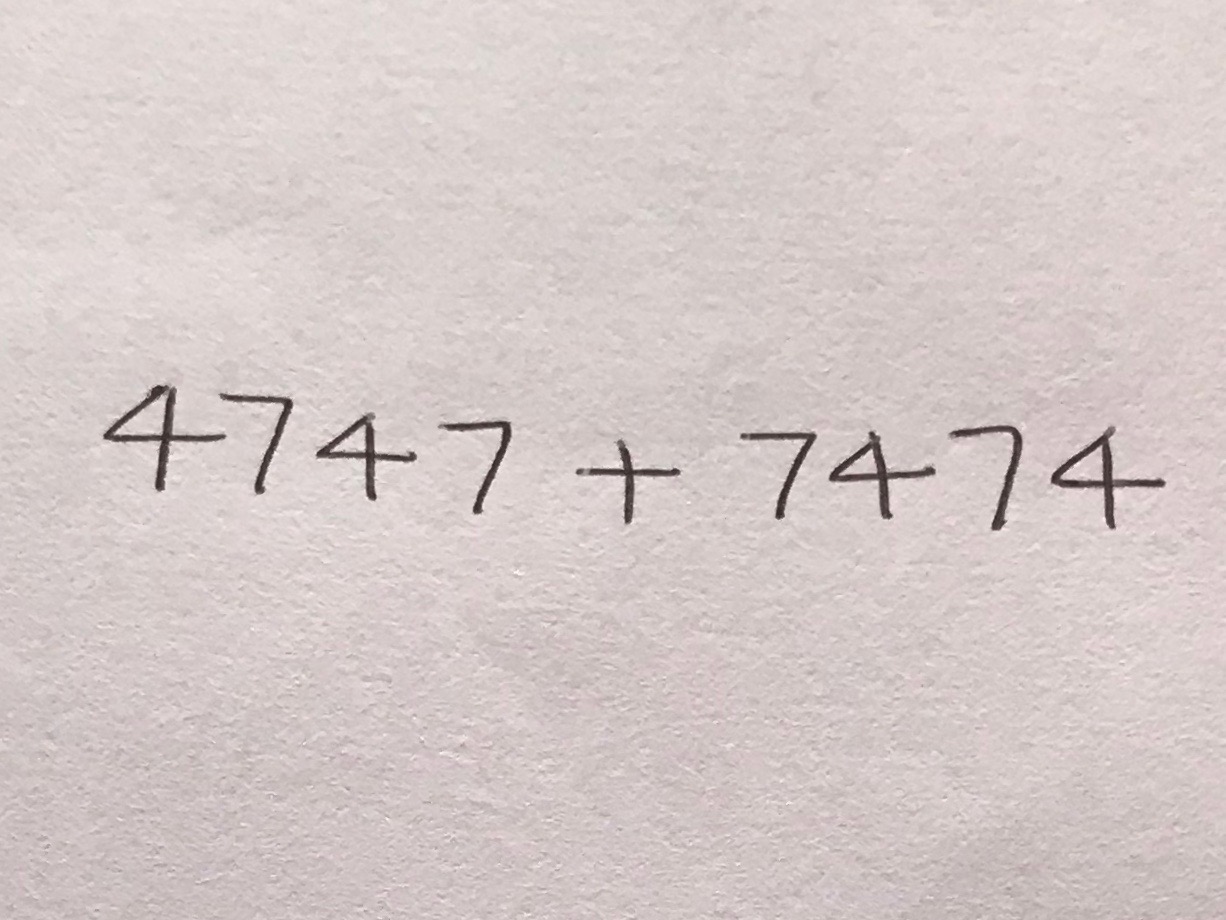 4747 + 7474